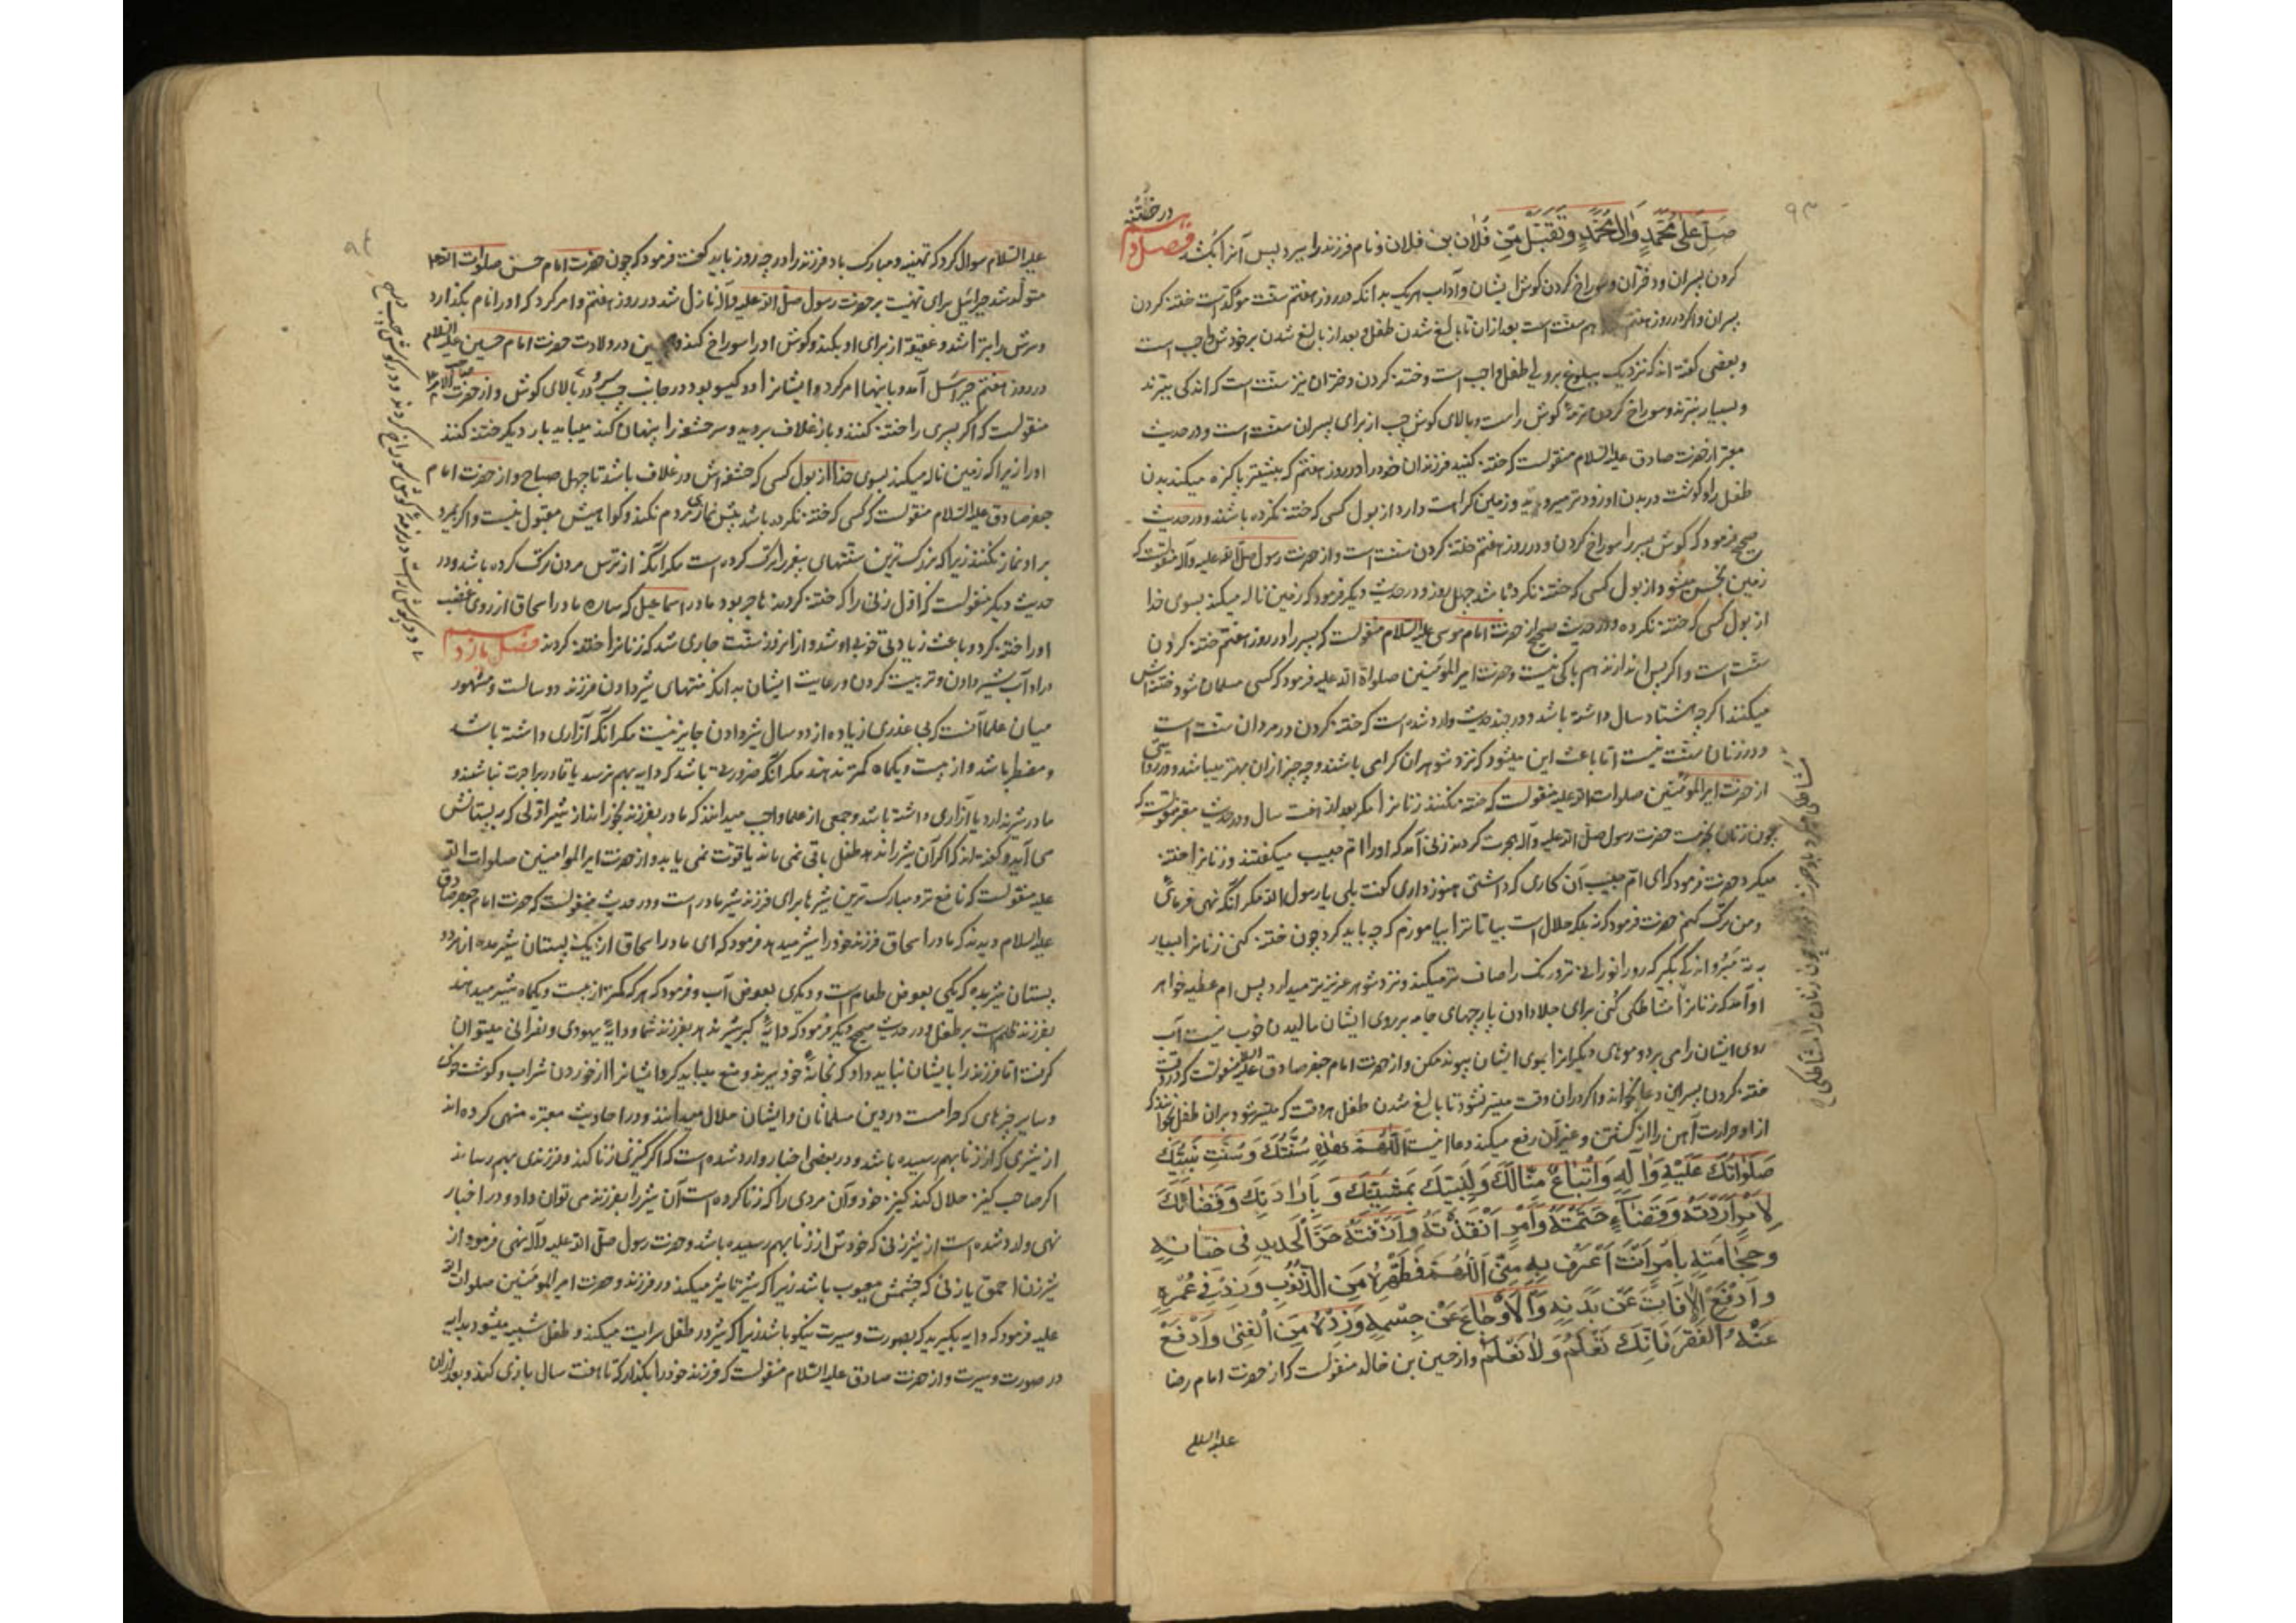 ۹۳
صَلِّ عَلی مُحَمَّدٍ وَآلِ مُحَمَّدٍ وَتَقَبَّل مِن فُلان بن فلان و نام فرزند را ببرد پس آنرا بکشد فصل دهم در ختنه
کردن پسران و دختران و سوراخ کردن گوش ایشان و آداب هریک بدانکه در روز هفتم سنت مؤکد است ختنه کردن
پسران و اگر در روز هفتم هم سنت است بعد ازان تا بالغ شدن طفل و بعد از بالغ شدن بر خودش واجب است
و بعضی گفته اند که نزدیک ببلوغ بر ولی طفل واجب است و ختنه کردن دختران نیز سنت است که اندکی ببرند
و بسیار نبرند و سوراخ کردن نرمهٔ گوش راست و بالای گوش چپ از برای پسران سنت است و در حدیث
معتبر از حضرت صادق علیه السلام منقولست که ختنه کنید فرزندان خود را در روز هفتم که بیشتر پاکیزه میکند بدن
طفل را و گوشت در بدن او زودتر میروید و زمین کراهت دارد از بول کسی که ختنه نکرده باشند و در حدیث
صحیح فرمود که گوش پسر را سوراخ کردن و در روز هفتم ختنه کردن سنت است و از حضرت رسول صلی الله علیه وآله منقولست که
زمین نجس میشود از بول کسی که ختنه نکرده باشد چهل روز و در حدیث دیگر فرمود که زمین ناله میکند بسوی خدا
از بول کسی که ختنه نکرده و در حدیث صحیح از حضرت امام موسی علیه السلام منقولست که پسر را در روز هفتم ختنه کردن
سنت است و اگر پس اندازند هم باکی نیست و حضرت امیر المؤمنین صلواة الله علیه فرمود که کسی مسلمان شود ختنه اش
میکنند اگرچه هشتاد سال داشته باشد و در چند حدیث وارد شده است که ختنه کردن در مردان سنت است
و در زنان سنت نیست اما باعث این میشود که نزد شوهران گرامی باشند و چه چیز ازان بهتر میباشد و در روایتی
از حضرت امیر المؤمنین صلوات الله علیه منقولست که ختنه نکنند زنانرا مگر بعد از هفت سال و در حدیث معتبر منقولست که
چون زنان بخدمت حضرت رسول صلی الله علیه وآله هجرت کردند زنی آمد که او را ام حبیب میگفتند و زنانرا ختنه
میکرد حضرت فرمود که ای ام حبیب آن کاری که داشتی هنوز داری گفت بلی یا رسول الله مگر آنکه نهی فرمائی
و من ترک کنم حضرت فرمود که نه بلکه حلال است بیا تا ترا بیاموزم که چه باید کرد چون ختنه کنی زنانرا بسیار
به ته مبُر و اندکی بگیر که رو را نورانی تر و رنگ را صاف تر میکند و نزد شوهر عزیزتر میدارد پس ام عطیه خواهر
او آمد که زنانرا مشاطگی کنی برای جلا دادن پارچهای جامه بر روی ایشان مالیدن خوب نیست آب
روی ایشان را می برد و موهای دیگرانرا بموی ایشان پیوند مکن و از حضرت امام جعفر صادق علیه السلام منقولست که در وقت
ختنه کردن پسر این دعا بخواند و اگر دران وقت میسر نشود تا بالغ شدن طفل هر وقت که میسر شود بران طفل بخوانند که
از او حرارت آهن را از کشتن و غیر آن رفع میکند دعا اینست اَللّهُمَّ هٰذِهِ سُنَّتُكَ وَ سُنَّتُ نَبِیِّكَ
صَلَوَاتُكَ عَلَیْهِ وَآلِهِ وَاتِّبَاعُ مِثَالَكَ وَلِنَبِیِّكَ بِمَشِیَّتِكَ وَ بِاِرَادَتِكَ وَقَضَائِكَ
لِاَمْرٍ اَرَدْتَهُ وَقَضَآءٍ حَتَمْتَهُ وَاَمْرٍ اَنْفَذْتَهُ وَاَذَقْتَهُ حَرَّ الْحَدِیدِ فی خِتَانِهِ
وَحِجَامَتِهِ بِاَمْرٍ اَنْتَ اَعْرَفُ بِهِ مِنِّی اَللّهُمَّ فَطَهِّرْهُ مِنَ الذُّنُوبِ وَزِدْ فِی عُمْرِهِ
وَادْفَعْ الآفَاتِ عَنْ بَدَنِهِ وَالْاَوْجَاعَ عَنْ جِسْمِهِ وَزِدْهُ مِنَ الْغِنٰی وَادْفَعْ
عَنْهُ الْفَقْرَ فَاِنَّكَ تَعْلَمُ وَلَا نَعْلَمُ و از حسین بن خالد منقولست که از حضرت امام رضا
علیه السلام
۹۴
علیه السلام سوال کرد که تهنیه و مبارک باد فرزند را در چه روز باید گفت فرمود که چون حضرت امام حسن صلوات الله علیه
متولد شد جبرائیل برای تهنیت بر حضرت رسول صلی الله علیه وآله نازل شد در روز هفتم و امر کرد که او را نام بگذارد
و سرش را بتراشد و عقیقه از برای او بکند و گوش او را سوراخ کند و همچنین در ولادت حضرت امام حسین علیه السلام
در روز هفتم جبرائیل آمد و باینها امر کرد و ایشانرا دو گیسو بود در جانب چپ سر و در بالای گوش و از حضرت صاحب الامر
منقولست که اگر پسری را ختنه کنند و باز غلاف بروید و سر حشفه را پنهان کند میباید بار دیگر ختنه کنند
او را زیرا که زمین ناله میکند بسوی خدا از بول کسی که حشفه اش در غلاف باشد تا چهل صباح و از حضرت امام
جعفر صادق علیه السلام منقولست که کسی که ختنه نکرده باشد پیش نمازی مردم نکند و گواهیش مقبول نیست و اگر بمیرد
بر او نماز نکنند زیرا که بزرگ ترین سنتهای پیغمبر را ترک کرده است مگر آنکه از ترس مردن ترک کرده باشد و در
حدیث دیگر منقولست که اول زنی را که ختنه کردند هاجر بود مادر اسماعیل که ساره مادر اسحاق از روی غضب
او را ختنه کرد و باعث زیادتی خوبی او شد و از انروز سنت جاری شد که زنانرا ختنه کردند فصل یازدهم
در آداب شیر دادن و تربیت کردن و رعایت ایشان بدانکه منتهای شیر دادن فرزند دو سالست و مشهور
میان علما آنست که بی عذری زیاده از دو سال شیر دادن جایز نیست مگر آنکه آزاری داشته باشد
و مضطر باشد و از بیست و یکماه کمتر ندهند مگر آنکه ضرورت باشد که دایه بهم نرسد یا قادر بر اجرت نباشند و
مادر شیر ندارد یا آزاری داشته باشد و جمعی از علما واجب میدانند که مادر بفرزند بخوراند از شیر اولی که به پستانش
می آید و گفته اند که اگر آن شیر را ندهد طفل باقی نمی ماند یا قوت نمی یابد و از حضرت امیر المؤمنین صلوات الله
علیه منقولست که نافع تر و مبارک ترین شیرها برای فرزند شیر مادر است و در حدیث منقولست که حضرت امام جعفر صادق
علیه السلام دیدند که مادر اسحاق فرزند خود را شیر میدهد فرمود که ای مادر اسحاق از یک پستان شیر مده از هر دو
پستان شیر بده که یکی بعوض طعام است و دیگری بعوض آب و فرمود که هر که کمتر از بیست و یکماه شیر میدهند
بفرزند ظلم است بر طفل و در حدیث صحیح دیگر فرمود که دایهٔ گبر شیر ندهد بفرزند شما و دایهٔ یهودی و نصرانی میتوان
گرفت اما فرزند را بایشان نباید داد که بخانهٔ خود ببرند و منع میباید کرد ایشانرا از خوردن شراب و گوشت خوک
و سایر چیزهای که حرامست در دین مسلمانان و ایشان حلال میدانند و در احادیث معتبره منهی کرده اند
از شیری که از زنا بهم رسیده باشد و در بعضی اخبار وارد شده است که اگر کنیزی زنا کند و فرزندی بهم رساند
اگر صاحب کنیز حلال کند کنیز خود و آن مردی را که زنا کرده است آن شیر را بفرزند می توان داد و در اخبار
نهی وارد شده است از شیر زنی که خودش از زنا بهم رسیده باشد و حضرت رسول صلی الله علیه وآله نهی فرمود از
شیر زن احمق یا زنی که چشمش معیوب باشد زیرا که شیر تاثیر میکند در فرزند و حضرت امیر المؤمنین صلوات الله
علیه فرمود که دایه بگیرید که بصورت و سیرت نیکو باشد زیرا که شیر در طفل سرایت میکند و طفل شبیه میشود بدایه
در صورت و سیرت و از حضرت صادق علیه السلام منقولست که فرزند خود را بگذار که تا هفت سال بازی کند و بعد ازان